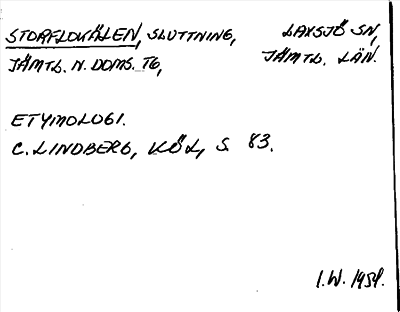 STORFLOKÅLEN, SLUTTNING, LAXSJÖ SN,
JÄMTL. N. DOMS. TG, JÄMTL. LÄN.
ETYMOLOGI.
C. LINDBERG, KÖL, S. 83.
I.W. 1954.